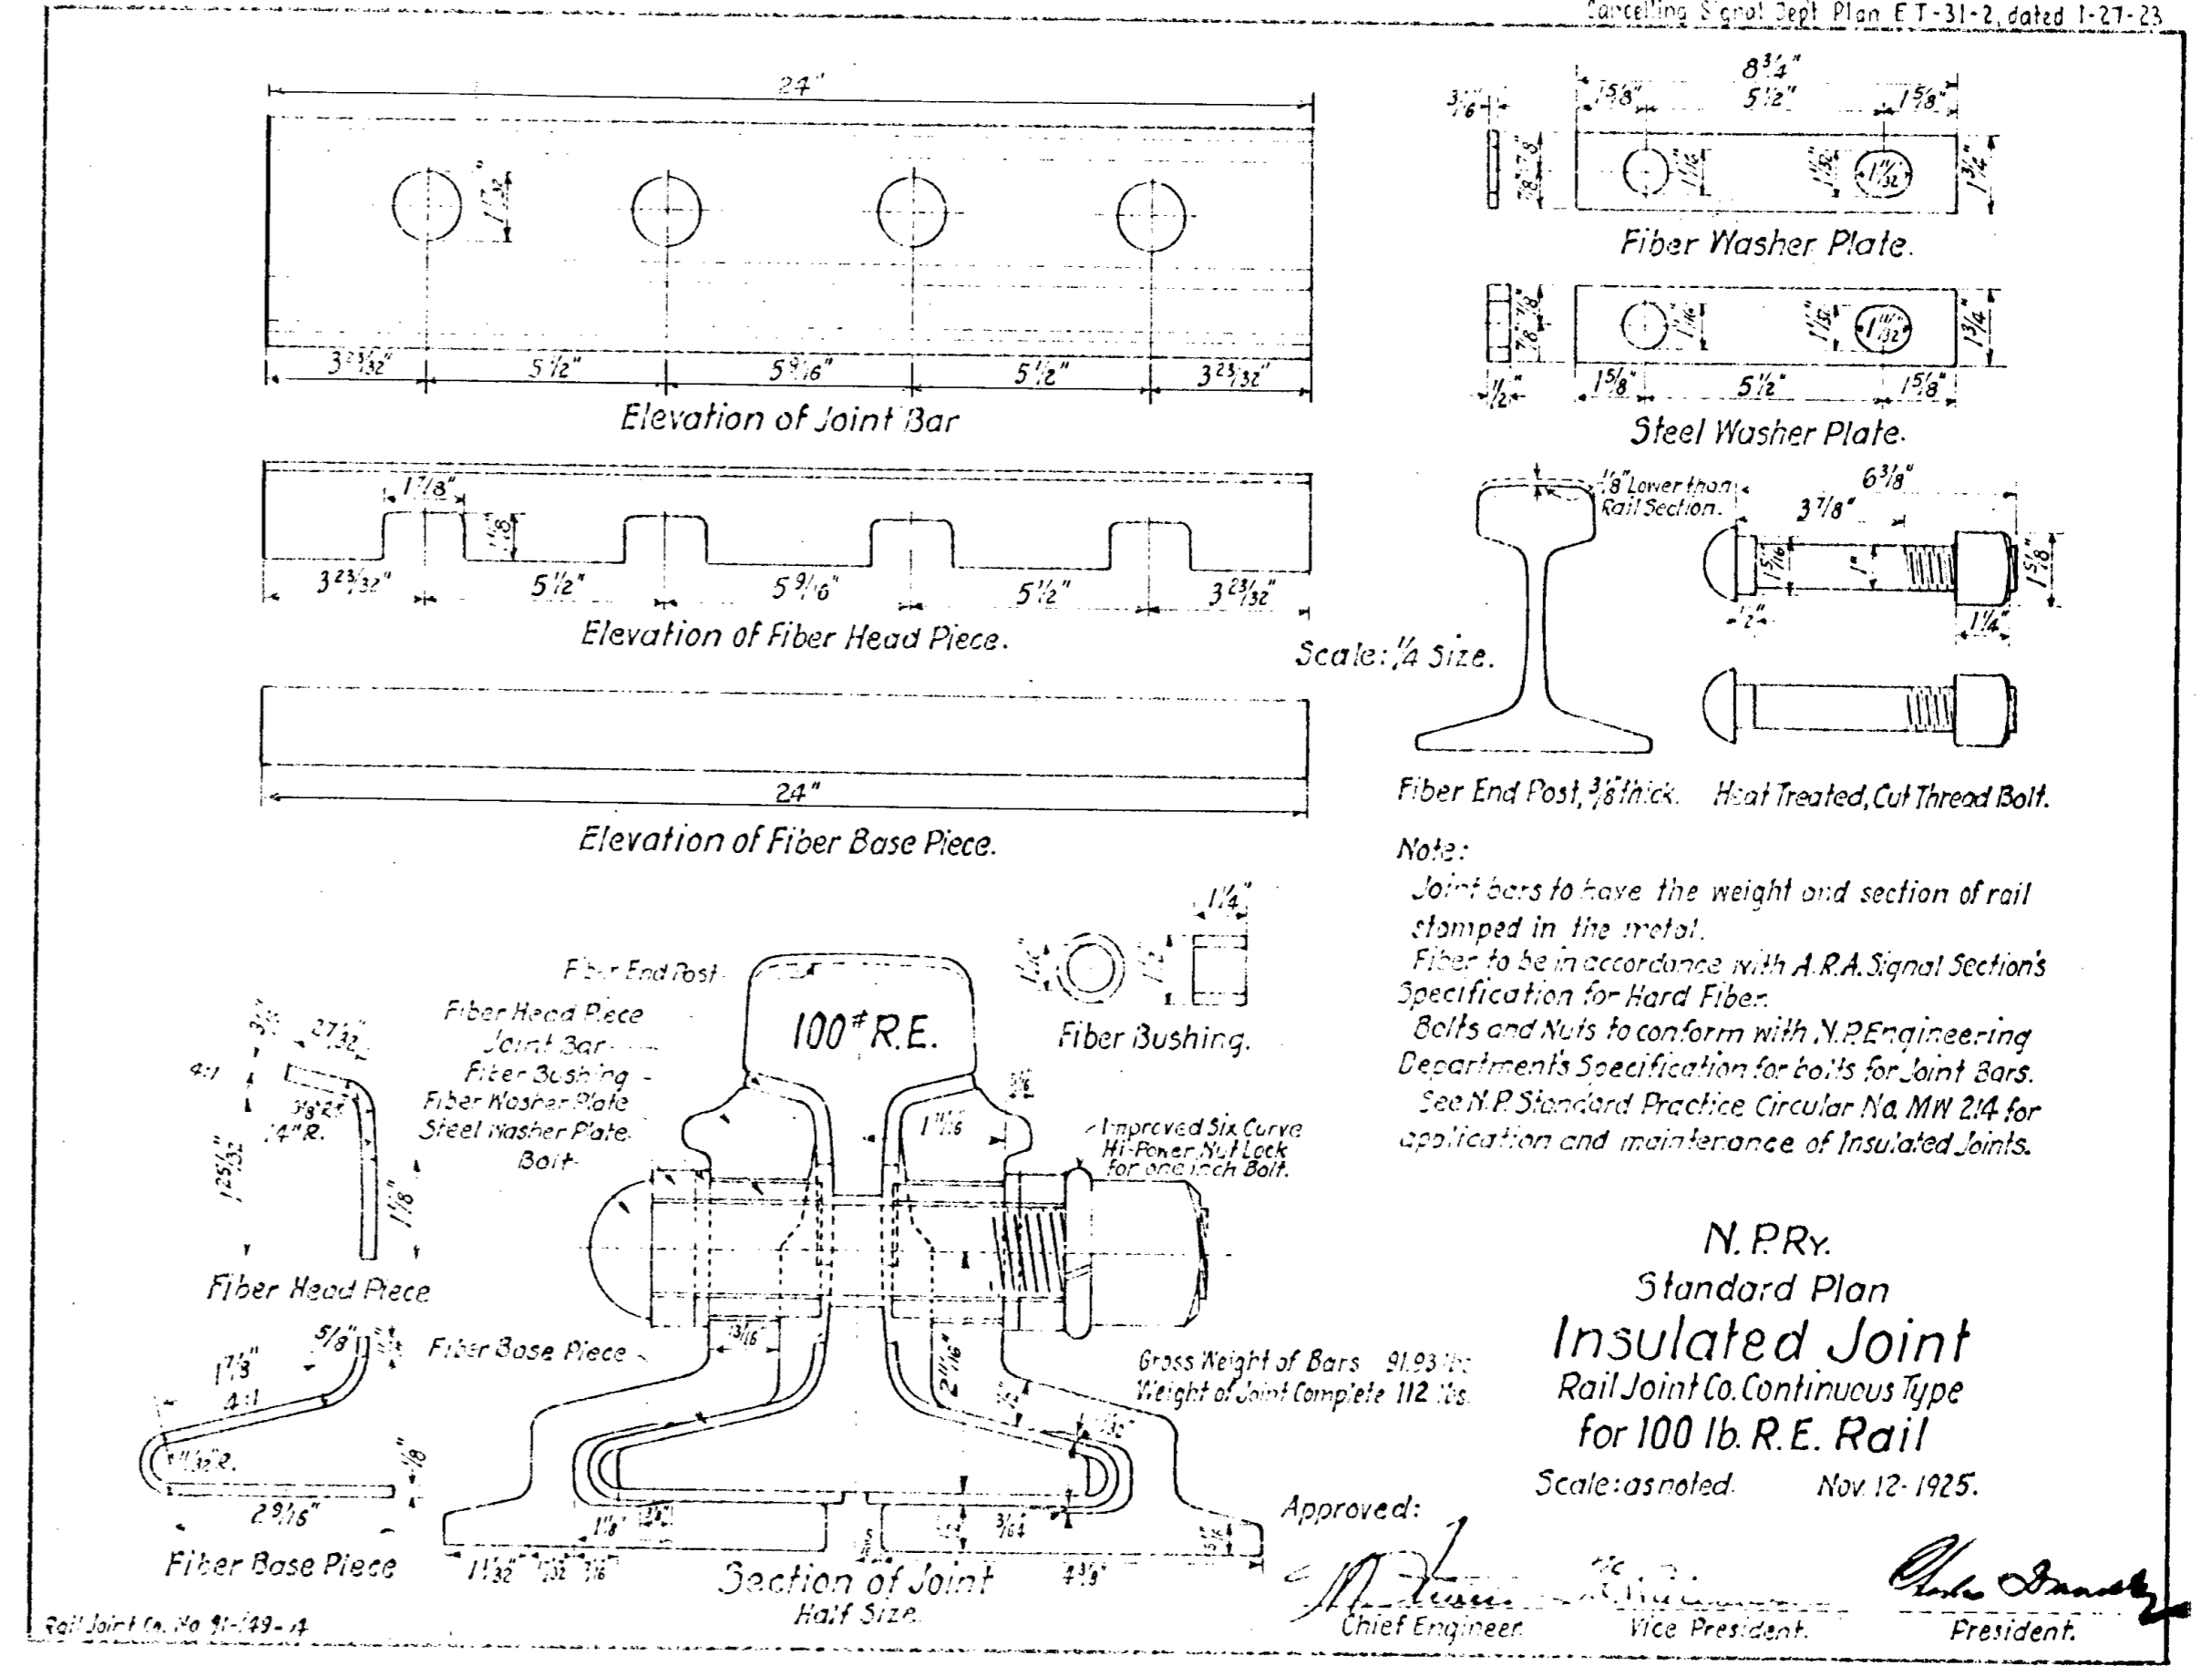 Cancelling Signal Dept Plan ET-31-2, dated 1-27-23
24"
1 17/32"
3 23/32" 5 1/2" 5 9/16" 5 1/2" 3 23/32"
Elevation of Joint Bar
1 7/8"
1 1/8"
3 23/32" 5 1/2" 5 9/16" 5 1/2" 3 23/32"
Elevation of Fiber Head Piece.
Scale: 1/4 Size.
24"
Elevation of Fiber Base Piece.
8 3/4"
3/16" 1 5/8" 5 1/2" 1 5/8"
7/8" 7/8" 1 1/16" 1 1/32" 1 11/32" 1 3/4"
Fiber Washer Plate.
7/8" 7/8" 1 1/16" 1 1/32" 1 11/32" 1 3/4"
1/2" 1 5/8" 5 1/2" 1 5/8"
Steel Washer Plate.
1/8" Lower than
Rail Section.
6 3/8"
3 7/8"
1 5/16" 1" 1 5/8"
1/2" 1 1/4"
Fiber End Post, 3/8" thick.
Heat Treated, Cut Thread Bolt.
Note:
Joint bars to have the weight and section of rail
stamped in the metal.
Fiber to be in accordance with A.R.A. Signal Section's
Specification for Hard Fiber.
Bolts and Nuts to conform with N.P. Engineering
Department's Specification for bolts for Joint Bars.
See N.P. Standard Practice Circular No. MW 214 for
application and maintenance of Insulated Joints.
1 1/4"
1 1/16" 1 1/2"
Fiber Bushing.
Fiber End Post
Fiber Head Piece
Joint Bar
Fiber Bushing
Fiber Washer Plate
Steel Washer Plate.
Bolt
100# R.E.
1 11/16
Improved Six Curve
Hi-Power Nut Lock
for one inch Bolt.
27/32"
4:1
1/4" R.
1 25/32"
1 1/8"
Fiber Head Piece
5/8"
1 7/8"
4:1
11/32" R.
1/8"
2 9/16"
Fiber Base Piece
Fiber Base Piece
13/16"
2 11/16"
Gross Weight of Bars 91.93 lbs
Weight of Joint Complete 112 lbs.
1 1/8" 3/64"
1 1/32" 7/16" 4 3/8"
Section of Joint
Half Size.
N.P.Ry.
Standard Plan
Insulated Joint
Rail Joint Co. Continuous Type
for 100 lb. R.E. Rail
Scale: as noted. Nov. 12-1925.
Approved:
Chief Engineer Vice President. President.
Rail Joint Co. No 91-149-A